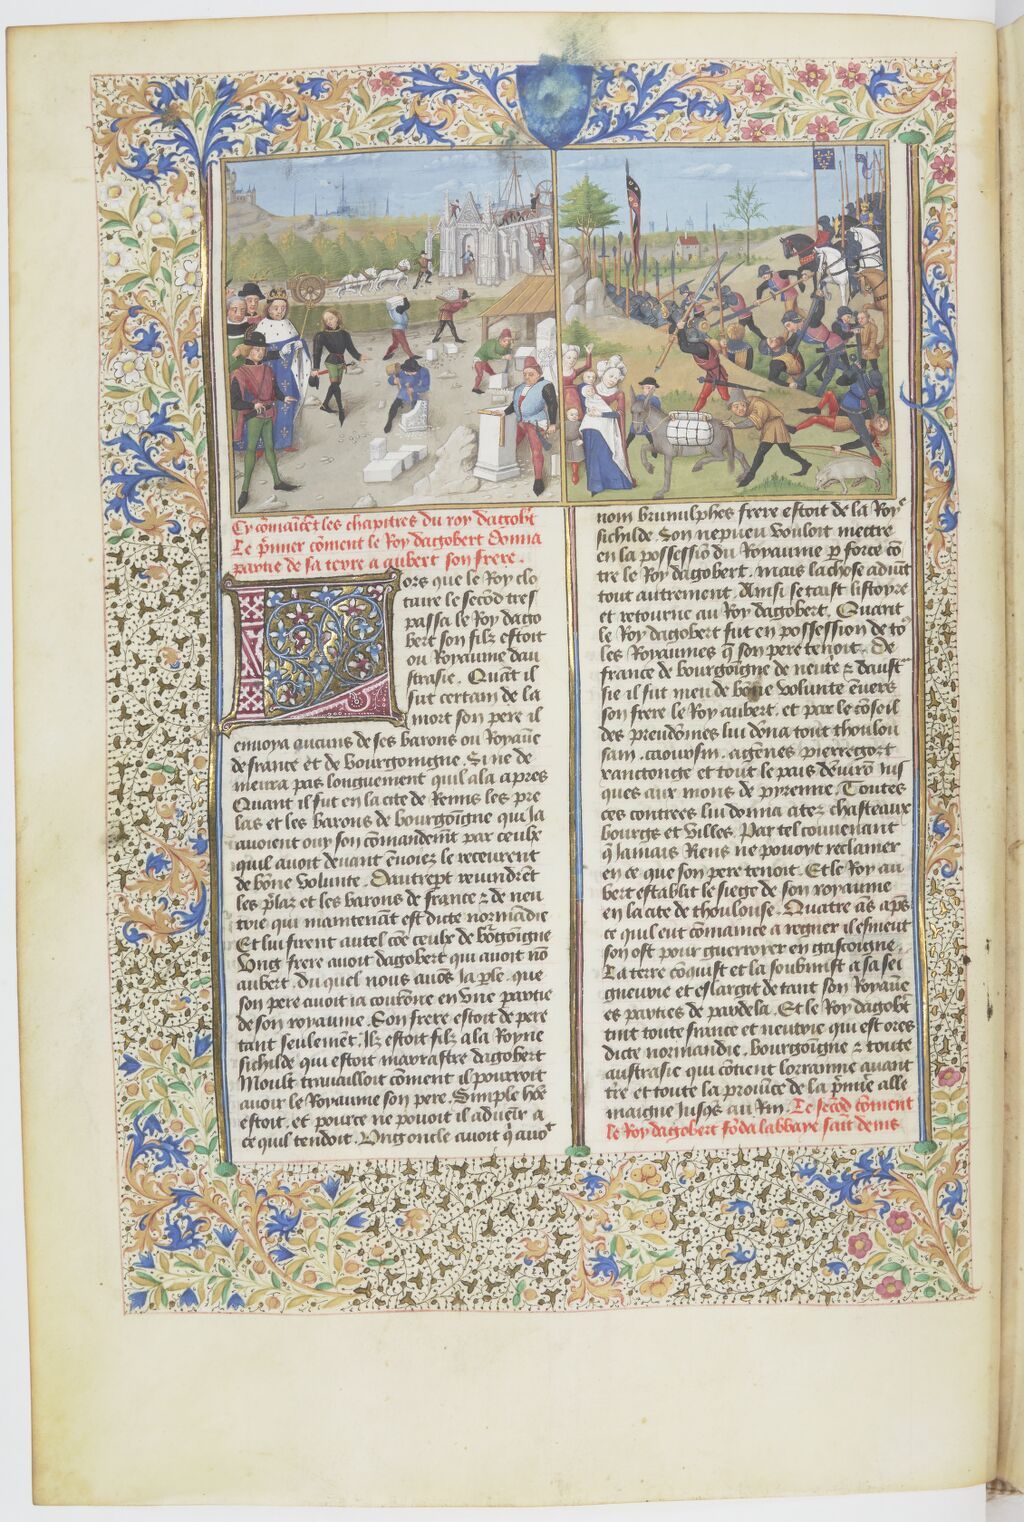 Cy cōmācēt les chapitres du roy dagobt
Le p̄mier cōment le Roy dagobert donna
partie de sa terre a aubert son frere.
Lors que le Roy clo
taire le secōd tres
passa le Roy dago
bert son filz estoit
ou Royaume dau
strasie. Quāt il
fut certain de la
mort son pere il
enuoya aucuns de ses barons ou Royaūe
de france et de bourgoingne. Si ne de
meura pas longuement quil ala apres
Quant il fut en la cite de Reims les pre
las et les barons de bourgōigne qui ja
auoient ouy son cōmandemt̄ par ceulx
quil auoit deuant ēuoiez le receurent
de bōne volunte. Dautrept reuindrēt
les p̄laz et les barons de france ⁊ de neu
trie qui maintenāt est dicte normādie
Et lui firent autel cōe ceulx de bōrgōigne
Vng frere auoit dagobert qui auoit nō
aubert. du quel nous auōs ja ple. que
son pere auoit ia courōne en vne partie
de son royaume. Son frere estoit de pere
tant seulemēt. Ilz estoit filz a la Royne
sichilde qui estoit marrastre dagobert
Moult trauailloit cōment il pourroit
auoir le Royaume son pere. Simple hōe
estoit. et pource ne pouoit il aduēir a
ce quil tendoit. Vng oncle auoit q̄ auoᵗ
nom brunulphes frere estoit de la Royᵉ
sichilde. Son nepueu vouloit mettre
en la possessiō du Royaume p force cō
tre le Roy dagobert. mais la chose aduīt
tout autrement. Ainsi se taist listoyre
et retourne au Roy dagobert. Quant
le Roy dagobert fut en possession de toˢ
les Royaumes q̄ son pere tenoit. De
france de bourgōigne de neutᵉ ⁊ daustᵃ
sie il fut meu de bōne volunte ēuers
son frere le Roy aubert. et par le cōseil
des preudōmes lui dōna tout thoulou
sain. caoursin. agenes pierregort
xanctonge et tout le pais dēuirō jus
ques aux mons de pyrenne. Toutes
ces contrees lui donna citez chasteaux
bourgs et villes. Par tel couuenant
q̄ jamais Riens ne pouoyt reclamer
en ce que son pere tenoit. Et le Roy au
bert establit le siege de son royaume
en la cite de thoulouse. Quatre ās aps̄
ce quil eut cōmāce a regner il esmeut
son ost pour guerroyer en gascoigne.
La terre cōquist et la soubmist a sa sei
gneurie et eslargit de tant son Royaūe
es parties de pardela. Et le Roy dagobt̄
tint toute france et neutrie qui est ores
dicte normandie. bourgōngne ⁊ toute
austrasie qui cōtient lorranne auant
tr̄e et toute la prouīce de la p̄mie alle
maigne jusq̄s au Rin. Le secōd cōment
le Roy dagobert fōda labbaye saīt denis